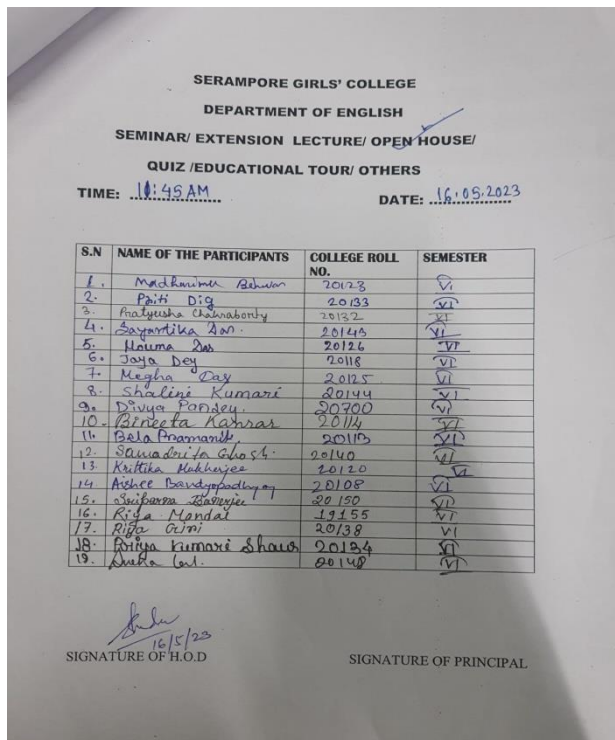 SERAMPORE GIRLS' COLLEGE
DEPARTMENT OF ENGLISH
SEMINAR/ EXTENSION LECTURE/ OPEN HOUSE/
QUIZ /EDUCATIONAL TOUR/ OTHERS
TIME: 11:45 AM DATE: 16.05.2023
S.N NAME OF THE PARTICIPANTS COLLEGE ROLL NO. SEMESTER
1. 20123 VI
2. 20133 VI
3. Pratyusha Chakraborty 20132 VI
4. Sayantika Das. 20143 VI
5. Mouma Das 20126 VI
6. Jaya Dey 20118 VI
7. Megha Das 20125 VI
8. Shalini Kumari 20144 VI
9. Divya Pandey. 20700 VI
10. Bineeta 20114 VI
11. Bela Pramanik 20113 VI
12. Samadrita Ghosh. 20140 VI
13. Krittika Mukherjee 20120 VI
14. Aishee Bandyopadhyay 20108 VI
15. Banerjee 20150 VI
16. Riya Mandal 19155 VI
17. Riya Giri 20138 VI
18. Priya Kumari Shaw 20134 VI
19. 20148 VI
16/5/23
SIGNATURE OF H.O.D SIGNATURE OF PRINCIPAL